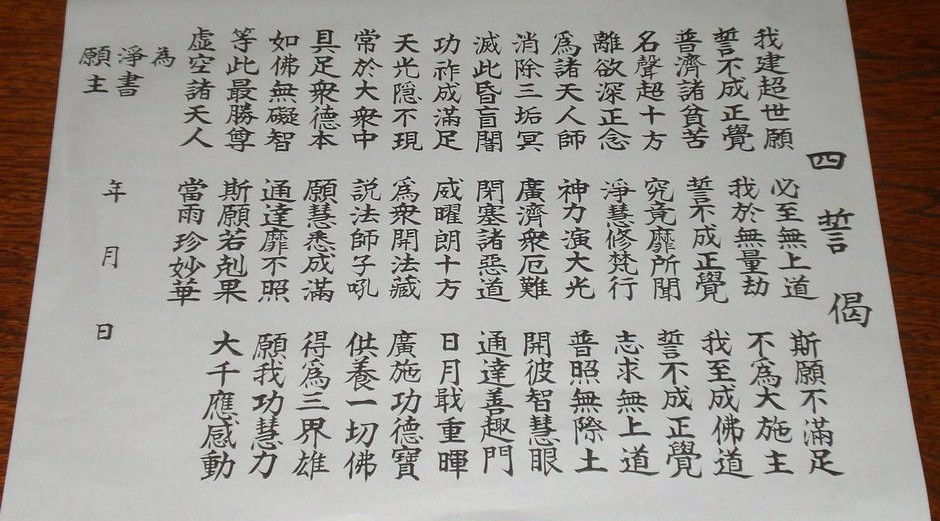 四誓偈
我建超世願 必至無上道 斯願不滿足
誓不成正覺 我於無量劫 不爲大施主
普濟諸貧苦 誓不成正覺 我至成佛道
名聲超十方 究竟靡所聞 誓不成正覺
離欲深正念 淨慧修梵行 志求無上道
爲諸天人師 神力演大光 普照無際土
消除三垢冥 廣濟衆厄難 開彼智慧眼
滅此昏盲闇 閇塞諸惡道 通達善趣門
功祚成滿足 威曜朗十方 日月戢重暉
天光隱不現 爲衆開法藏 廣施功德寶
常於大衆中 説法師子吼 供養一切佛
具足衆德本 願慧悉成滿 得爲三界雄
如佛無礙智 通達靡不照 願我功慧力
等此最勝尊 斯願若剋果 大千應感動
虛空諸天人 當雨珍妙華
為
淨書 年 月 日
願主